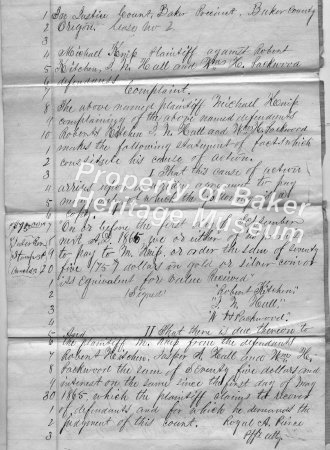 1 In Justice Court, Baker Precinct, Baker County
2 Oregon. Case No 2
3
4 Michall Knip Plaintiff against Robert
5 Kitchen, J. N. Hall and Wm H. Packwood
6 defendants
7 Complaint.
8 The above named plaintiff Michall Knip
9 complaining of the above named defendants
10 Robert Kitchen J. N. Hall and Wm H. Packwood
1 makes the following statement of facts which
2 constitute his cause of action.
3 I That this cause of action
4 arises upon
5 money of which the
6 copy
On or before the first of September
next A.D. 1865 we or either
20 to pay to M. Knip, or order the sum of seventy
five (75) dollars in gold or silver coin or
its equivalent for value received
(Signed) "Robert Kitchen"
"J. N. Hall"
"W H Packwood"
And II That there is due thereon to
the plaintiff M. Knip from the defendants
Robert Kitchen, Hall and Wm H.
Packwood the sum of Seventy five dollars and
interest on the same since the first day of May
30 1865, which the plaintiff claims to recover
1 of defendants and for which he demands the
2 judgment of this court. Royal A. Pierce
3 Plffs atty
Property of Baker
Heritage Museum